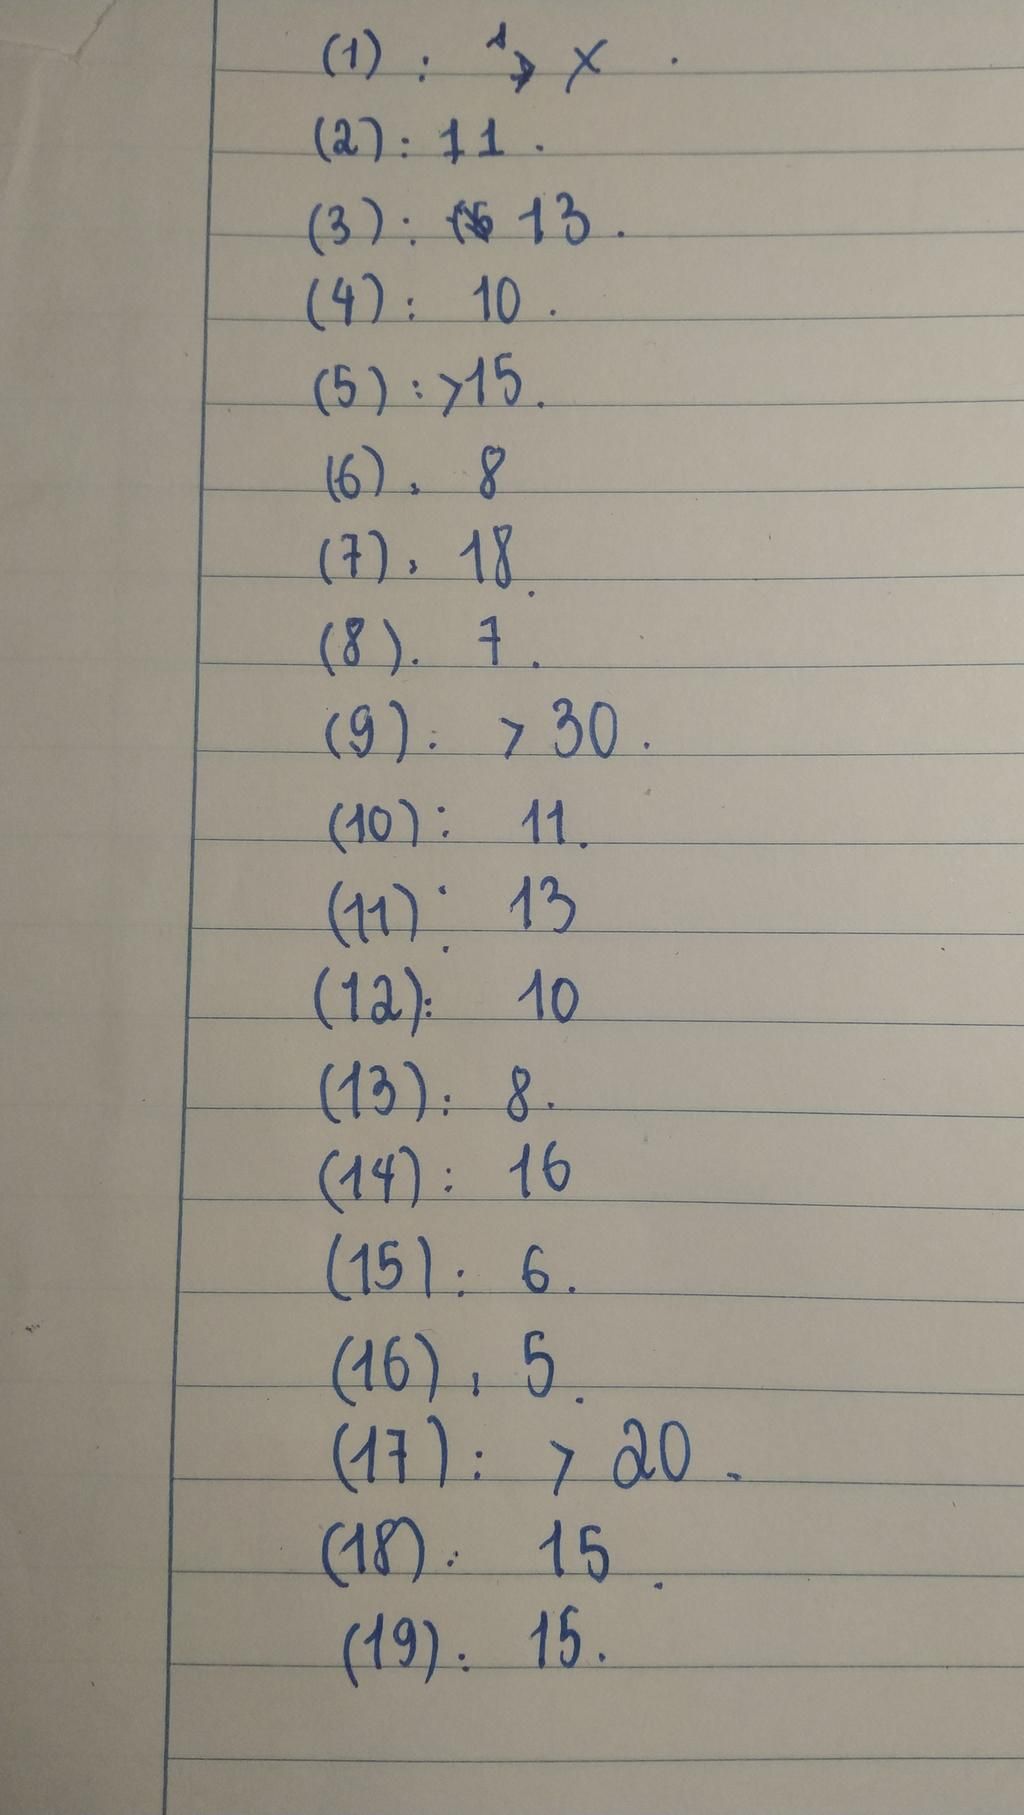 (1) : X .
(2) : 11 .
(3) : 13 .
(4) : 10 .
(5) : >15 .
(6) . 8
(7) . 18 .
(8) . 7 .
(9) : > 30 .
(10) : 11 .
(11) : 13
(12) : 10
(13) : 8 .
(14) : 16
(15) : 6 .
(16) : 5 .
(17) : > 20 .
(18) : 15 .
(19) : 15 .